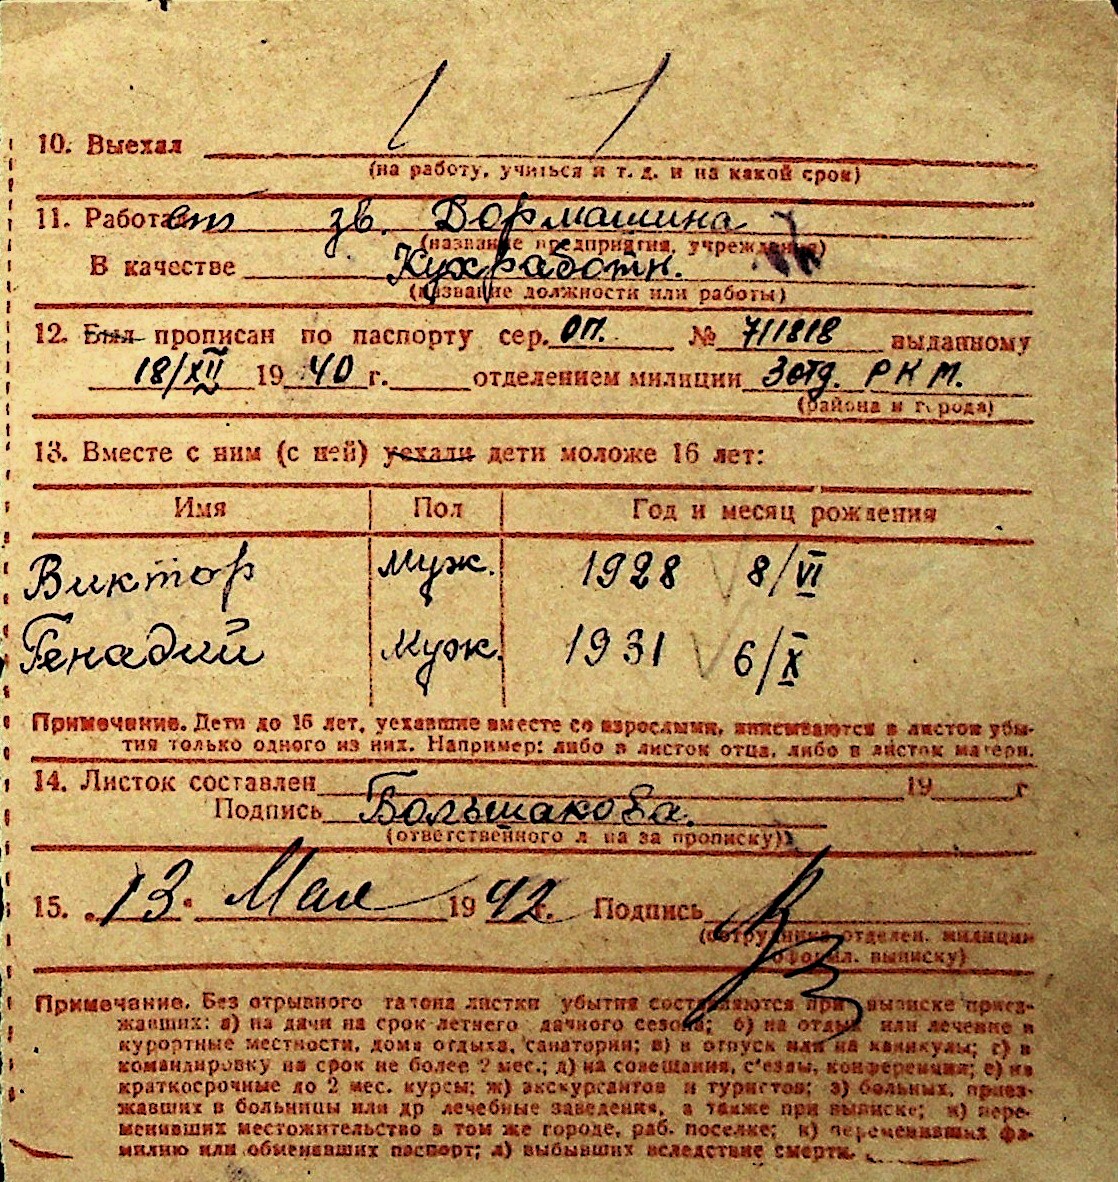 10. Выехал
(на работу, учиться и т. д. и на какой срок)
11. Работает зв. Дормашина
(название предприятия, учреждения)
В качестве Кухработн.
(название должности или работы)
12. Был прописан по паспорту сер. ОП. № 711818 выданному
18/XII 1940 г. отделением милиции 3 отд. РКМ.
(района и города)
13. Вместе с ним (с ней) уехали дети моложе 16 лет:
Имя Пол Год и месяц рождения
Виктор муж. 1928 8/VI
Генадий муж. 1931 6/X
Примечание. Дети до 16 лет, уехавшие вместе со взрослыми, вписываются в листок убы-
тия только одного из них. Например: либо в листок отца, либо в листок матери.
14. Листок составлен 19 г
Подпись Большакова.
(ответственного л на за прописку)
15. „13“ Мая 1942 г. Подпись
(сотрудника отделен. милиции
оформл. выписку)
Примечание. Без отрывного талона листки убытия составляются при выписке приез-
жавших: а) на дачи на срок летнего дачного сезона; б) на отдых или лечение в
курортные местности, дома отдыха, санатории; в) в отпуск или на каникулы; г) в
командировку на срок не более 2 мес.; д) на совещания, с'езды, конференции; е) на
краткосрочные до 2 мес. курсы; ж) экскурсантов и туристов; з) больных, приез-
жавших в больницы или др лечебные заведения, а также при выписке; и) пере-
менивших местожительство в том же городе, раб. поселке; к) переменивших фа-
милию или обменявших паспорт; л) выбывших вследствие смерти.